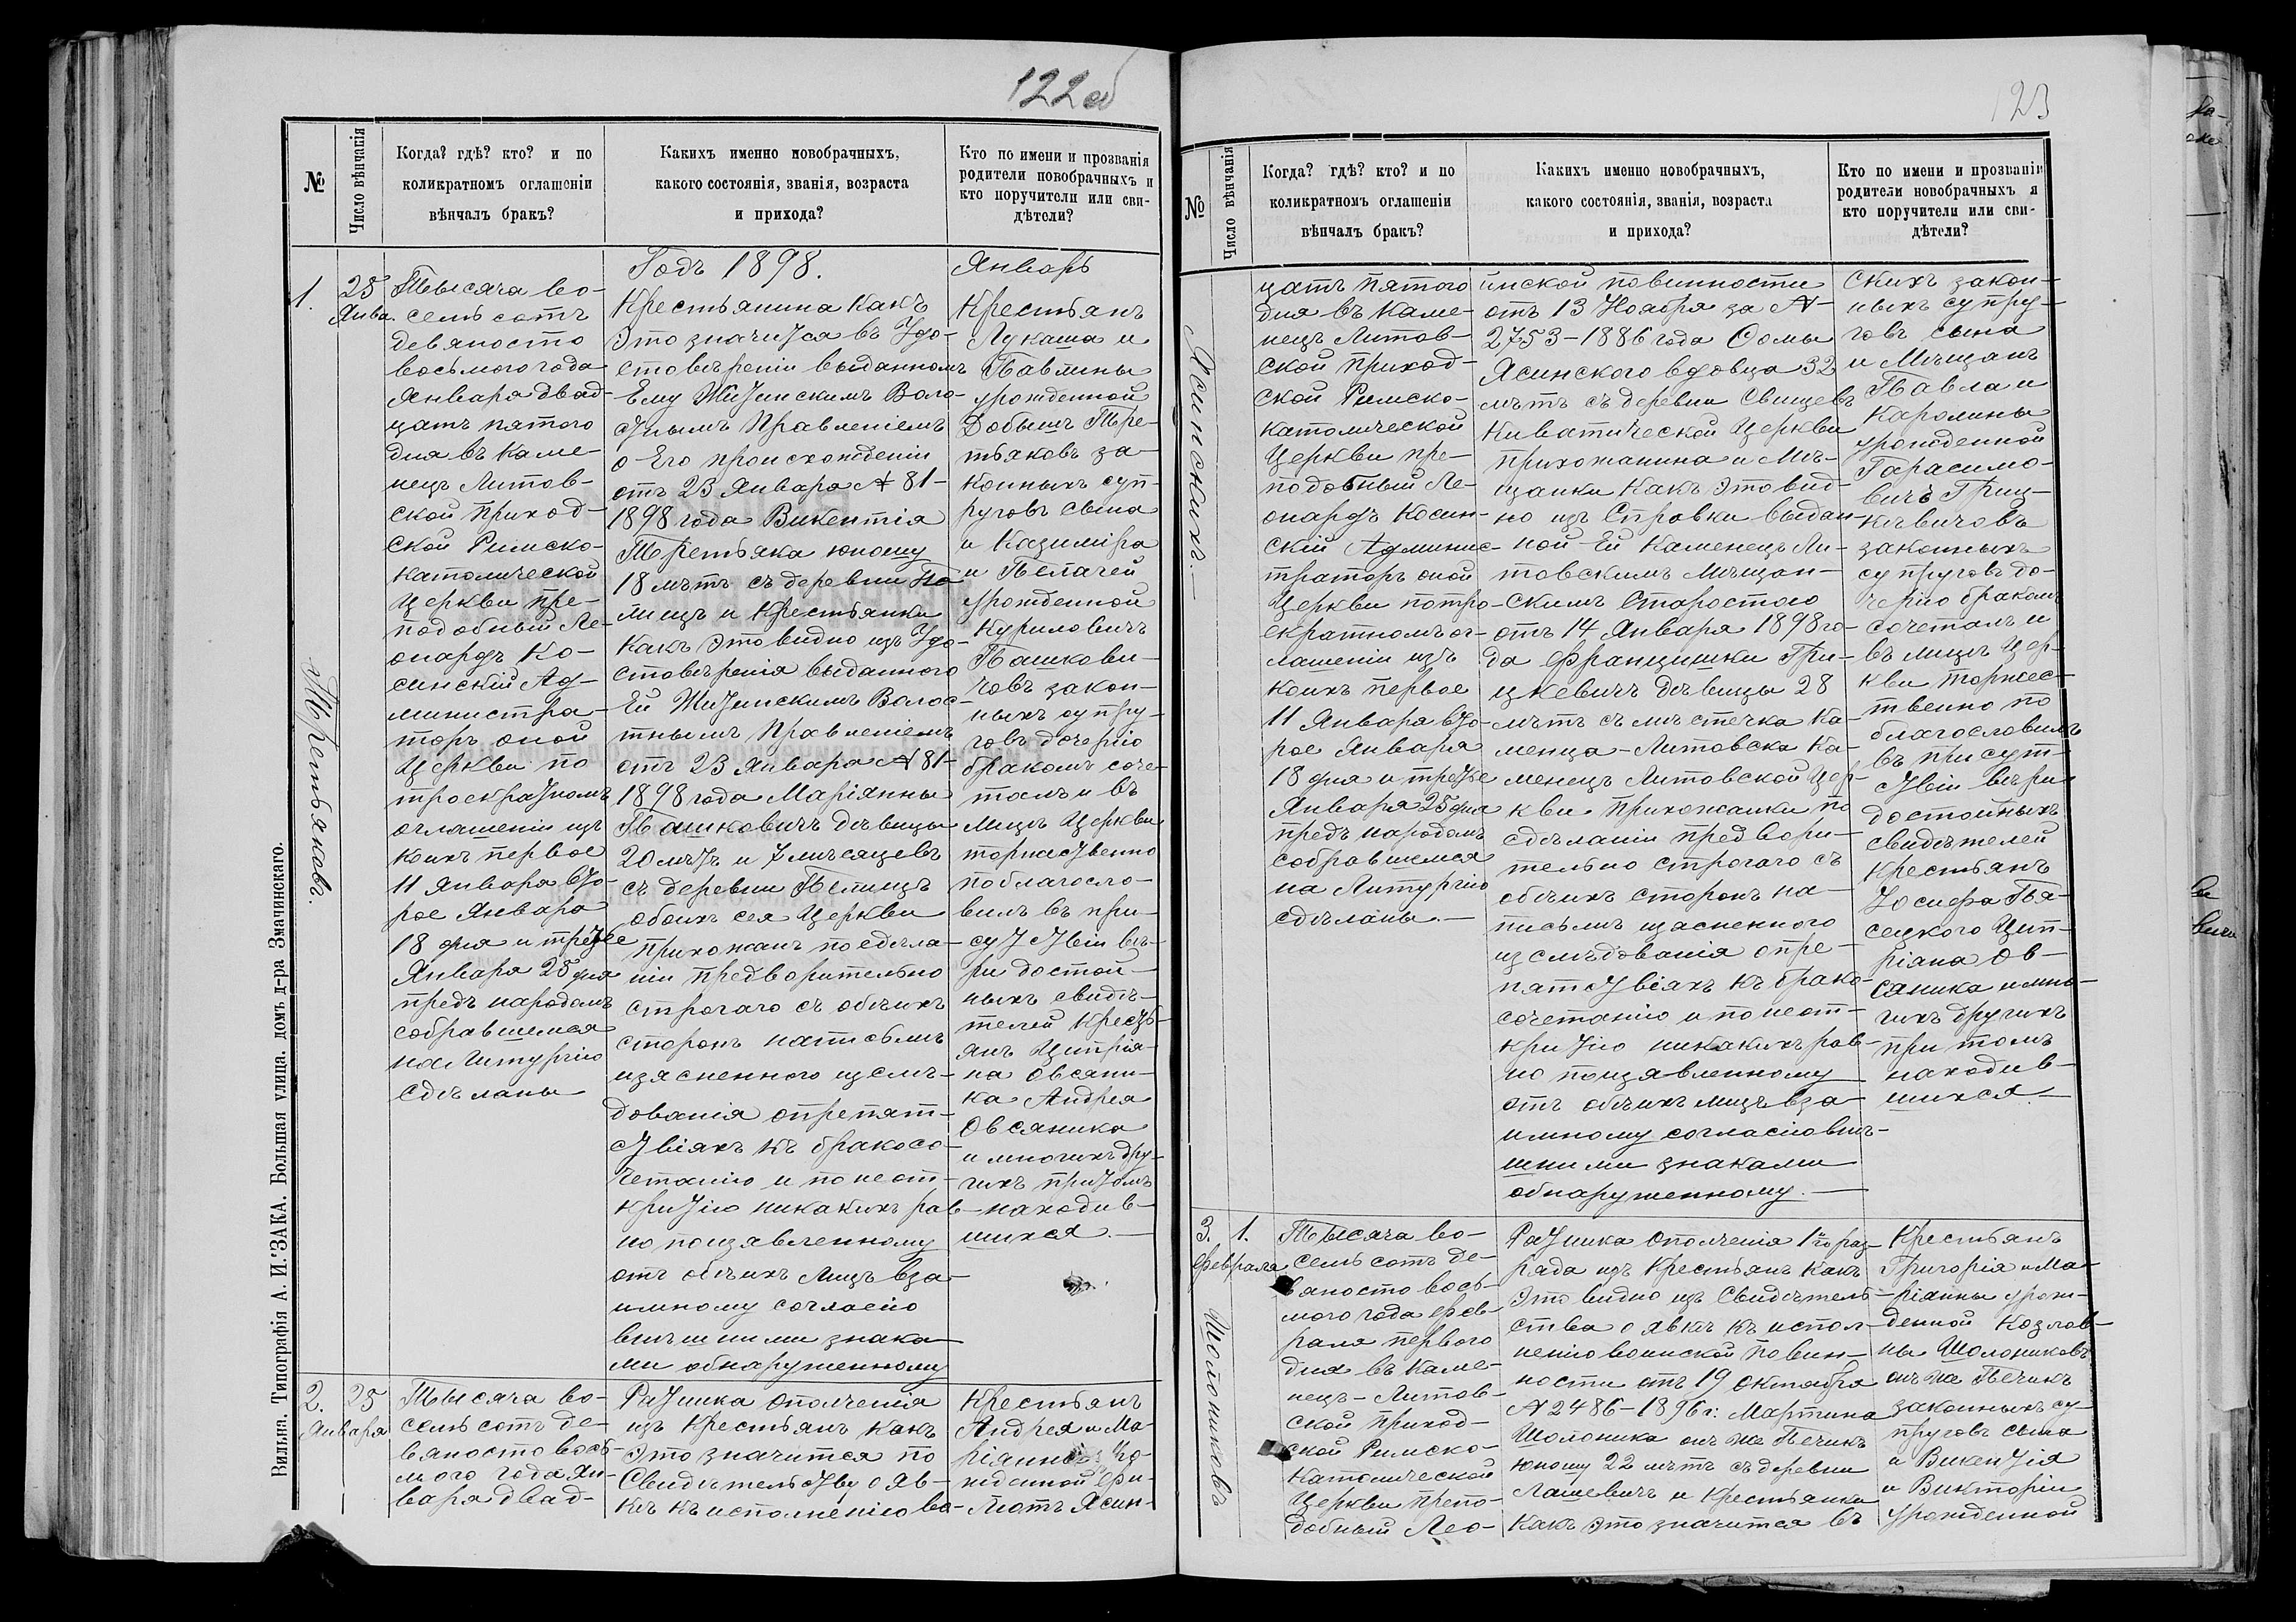 122 об
№
Число вѣнчанія
Когда? гдѣ? кто? и по
коликратномъ оглашеніи
вѣнчалъ бракъ?
Какихъ именно новобрачныхъ,
какого состоянія, званія, возраста
и прихода?
Кто по имени и прозванія
родители новобрачныхъ и
кто поручители или сви-
дѣтели?
1.
25
Янва.
Третьяковъ.
Тысяча во-
семь сотъ
девяносто
восьмого года
Января двад-
цать пятого
дня въ Каме-
нецъ Литов-
ской приход-
ской Римско-
католической
Церкви пре-
подобный Ле-
онардъ Ко-
синскій Ад-
министра-
торъ оной
Церкви по
троекратномъ
оглашеніи изъ
коихъ первое
11 Января вто-
рое Января
18 дня и третье
Января 25 дня
предъ народомъ
собравшемся
на Литургію
сдѣланы
Годъ 1898.
Крестьянина какъ
это значится въ Удо-
стовѣреніи выданномъ
Ему Житинскимъ Воло-
стнымъ Правленіемъ
о Его происхожденіи
отъ 23 Января № 81-
1898 года Викентія
Третьяка юношу
18 лѣтъ съ деревни Пе
лищъ и Крестьянки
какъ это видно изъ Удо-
стовѣренія выданного
Ей Житинскимъ Волос-
тнымъ Правленіемъ
отъ 23 Января № 81-
1898 года Маріянны
Пашковичъ дѣвицы
20 лѣтъ и 7 мѣсяцевъ
съ деревни Пелищъ
обоихъ сея Церкви
прихожанъ по сдѣла-
ніи предворительно
строгаго съ обѣихъ
сторонъ на письмѣ
изясненного изслѣ-
дованія о препят-
ствіяхъ къ бракосо-
четанію и по неот-
критію никакихъ рав-
но по изявленному
отъ обѣихъ лицъ вза-
имному согласію
внѣшними знака-
ми обнаруженному
Январь
Крестьянъ
Лукаша и
Павлины
урожденной
Добышъ Тре-
тьяковъ за-
конныхъ суп-
руговъ сына
и Казиміра
и Пелачей
урожденной
Куриловичъ
Пашкови-
човъ закон-
ныхъ супру-
говъ дочерію
бракомъ соче-
талъ и въ
Лицѣ Церкви
торжественно
поблагосло-
вилъ въ при-
сутствіи вѣ-
ри достой-
ныхъ свидѣ-
телей Кресть-
янъ Ципрія-
на Овсяни-
ка Андрея
Овсяника
и многихъ дру-
гихъ притомъ
находив-
шихся.
2.
25
Января
Тысяча во-
семь сотъ де-
вяносто вось-
мого года Ян-
варя двад-
Ратника ополченія
изъ Крестьянъ какъ
это значится по
Свидѣтельству о яв-
кѣ къ исполненію во-
Крестьянъ
Андрея и Ма-
ріянны Уро-
жденной
Ясин-
Вильна. Типографія А. И. ЗАКА. Большая улица. домъ д-ра Змачинскаго.
123
№
Число вѣнчанія
Когда? гдѣ? кто? и по
коликратномъ оглашеніи
вѣнчалъ бракъ?
Какихъ именно новобрачныхъ,
какого состоянія, званія, возраста
и прихода?
Кто по имени и прозваніи
родители новобрачныхъ я
кто поручители или сви-
дѣтели?
Ясинскихъ.
цать пятого
дня въ Каме-
нецъ Литов-
ской приход-
ской Римско-
католической
Церкви пре-
подобный Ле-
онардъ Косин-
скій Админис-
траторъ оной
Церкви по тро-
екратномъ ог-
лашеніи изъ
коихъ первое
11 Января вто-
рое Января
18 дня и третье
Января 25 дня
предъ народомъ
собравшемся
на Литургію
сдѣланы.
инской повинности
отъ 13 Ноября за №
2753-1886 года Фомы
Ясинского вдовца 32
лѣтъ съ деревни Свищевъ
Киватической Церкви
прихожанина и Мѣ-
щанки какъ это вид-
но изъ Справки выдан-
ной Ей Каменецъ Ли-
товскимъ Мѣщан-
скимъ Старостою
отъ 14 Января 1898 го-
да Францишки Гри-
цкевичъ дѣвицы 28
лѣтъ съ мѣстечка Ка-
менца-Литовска Ка-
менецъ Литовской Цер-
кви прихожанки по
сдѣланіи предвори-
тельно строгаго съ
обѣихъ сторонъ на
письмѣ изясненного
изслѣдованія о пре-
пятствіяхъ къ брако-
сочетанію и по неот-
критію никакихъ рав-
но по изявленному
отъ обѣихъ лицъ вза-
имному согласію внѣ-
шними знаками
обнаруженному.
скихъ закон-
ныхъ супру-
говъ сына
и Мѣщанъ
Павла и
Каролины
урожденной
Гарасимо-
вичъ Гриц-
кевичовъ
законныхъ
супруговъ до-
черію бракомъ
сочеталъ и
въ лицѣ Цер-
кви торжес-
твенно по
благословилъ
въ присут-
ствіи вѣри
достойныхъ
свидѣтелей
Крестьянъ
Іосифа Пя-
сецкого Цип-
ріяна Ов-
сяника и мно-
гихъ другихъ
при томъ
находив-
шихся
3.
1.
Февраля
Шолониковъ
Тысяча во-
семь сотъ де-
вяносто вось-
мого года Фев-
раля первого
дня въ Каме-
нецъ-Литов-
ской приход-
ской Римско-
Католической
Церкви препо-
добный Лео-
Ратника ополченія 1го раз-
ряда изъ Крестьянъ какъ
это видно изъ Свидѣтель-
ства о явкѣ къ испол-
ненію воинской повин-
ности отъ 19 Октября
№ 2486-1896 г. Мартина
Шолоника онъ же Печикъ
юношу 22 лѣтъ съ деревни
Лашевичъ и Крестьянки
какъ это значится въ
Крестьянъ
Григорія и Ма-
ріянны урож-
денной Козлов-
ны Шолониковъ
онъ же Печикъ
законныхъ су-
пруговъ сына
и Викентія
и Викторіи
урожденной